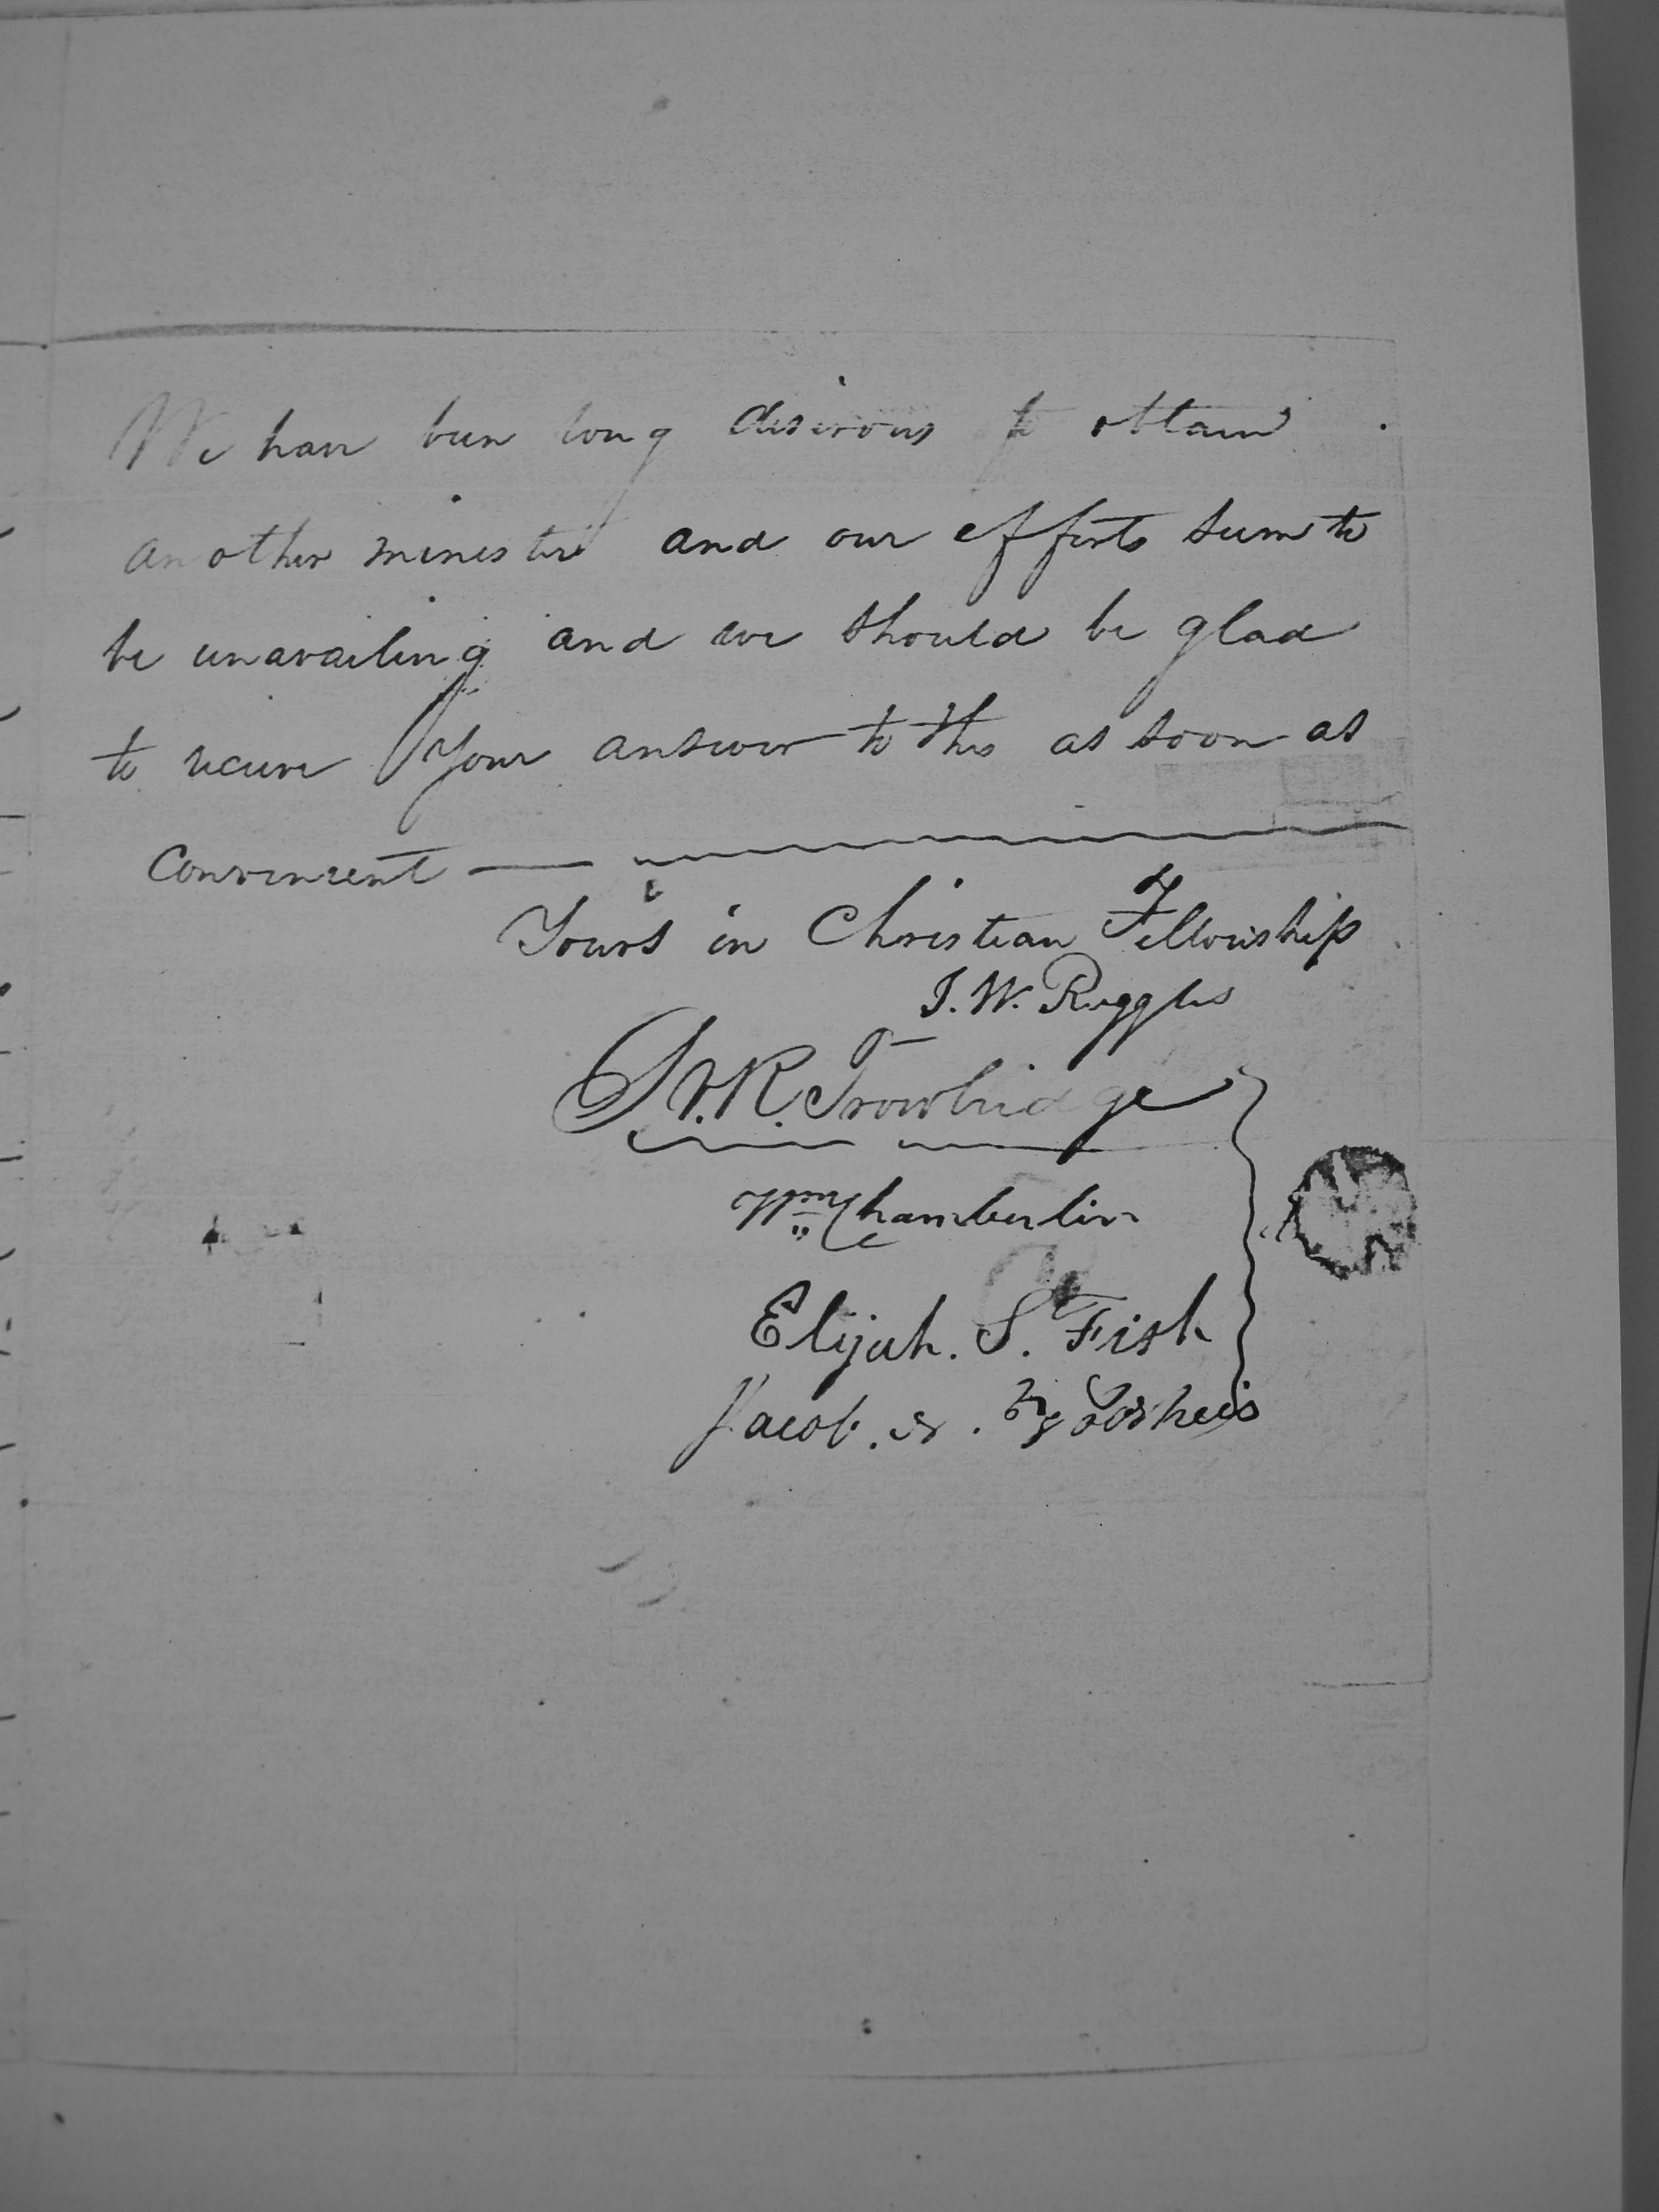 We have been long desirous to obtain
another minister and our efforts seem to
be unavailing and we should be glad
to receive Your answer to this as soon as
Convenient
Yours in Christian Fellowship
I. W. Ruggles
S. V. R. Trowbridge
Wm Chamberlin
Elijah. S. Fish
Jacob. Voorheis